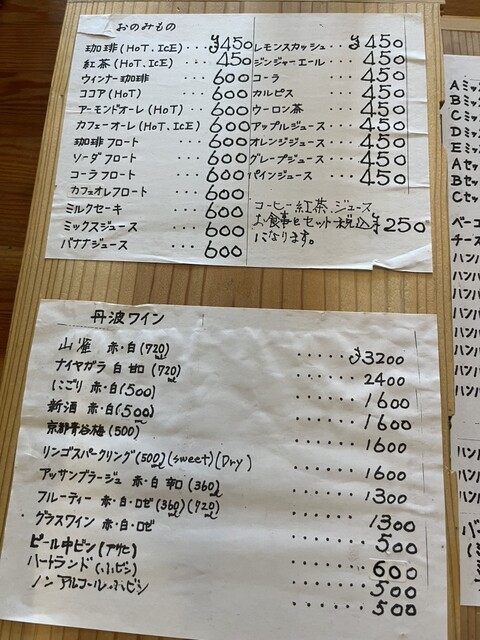 おのみもの
珈琲(HOT、ICE)・・・¥450
紅茶(HOT、ICE)・・450
ウィンナー珈琲・・600
ココア(HOT)・・・600
アーモンドオーレ(HOT)・・600
カフェーオーレ(HOT、ICE)・・600
珈琲フロート・・・600
ソーダフロート・・・600
コーラフロート・・・600
カフェオレフロート・・・600
ミルクセーキ・・・600
ミックスジュース・・・600
バナナジュース・・・600
レモンスカッシュ ¥450
ジンジャーエール・・450
コーラ・・450
カルピス・・450
ウーロン茶・・450
アップルジュース・・450
オレンジジュース・・450
グレープジュース・・450
パインジュース・・450
コーヒー紅茶、ジュース
お食事とセット税込¥250
になります。
丹波ワイン
赤・白(720ml)・・・・・・¥3200
ナイヤガラ 白 甘口(720ml)・・・・・・2400
にごり 赤・白(500)・・・・・・1600
新酒 赤・白(500ml)・・・・・・1600
京都青谷梅(500)・・・・・・1600
リンゴスパークリング(500ml)(sweet)(Dry)・・・・・・1600
アッサンブラージュ 赤・白 辛口(360ml)・・・・・・1300
フルーティー 赤・白・ロゼ(360ml)(720ml)・・・・・・1300
グラスワイン 赤・白・ロゼ・・・・・・500
ビール中ビン(アサヒ)・・・・・・600
ハートランド(小ビン)・・・・・・500
ノンアルコール小ビン・・・・・・500
Aミッ
Bミッ
Cミッ
Dミッ
Eミッ
Aセッ
Bセッ
Cセッ
ベーコ
チーズ
ハンバ
ハンバ
ハンバ
ハンバ
ハンバ
ハンバ
ハンバ
ハンバ
ハンバ